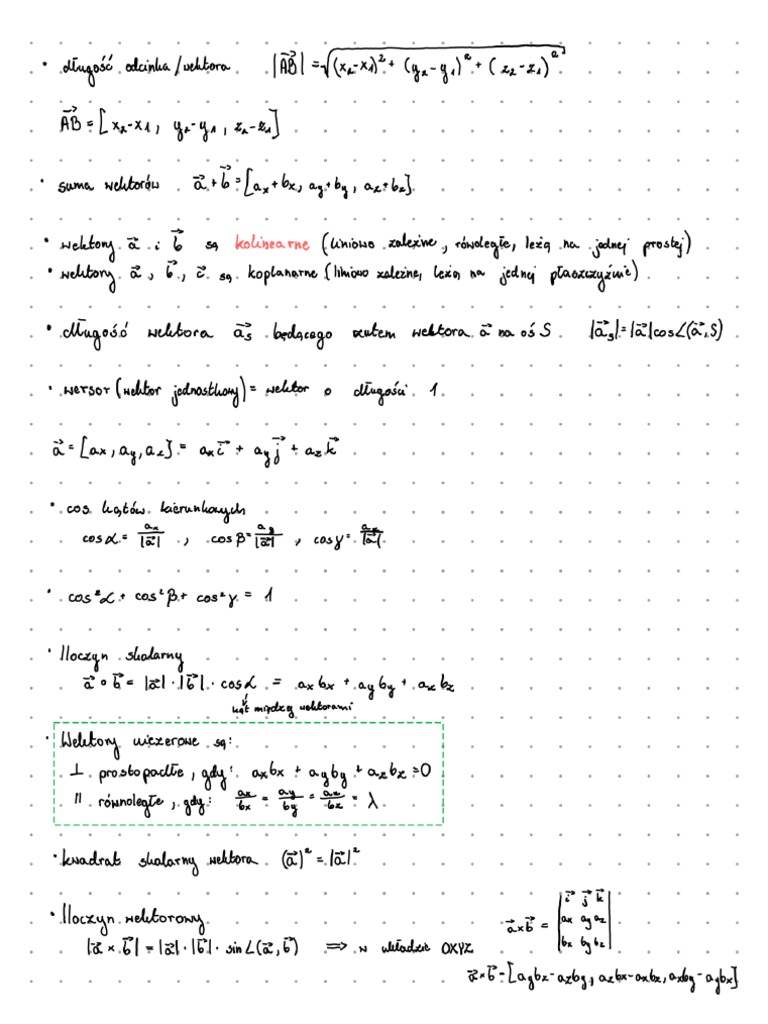 • długość odcinka/wektora |AB⃗| = √((x₂-x₁)² + (y₂-y₁)² + (z₂-z₁)²)
AB⃗ = [x₂-x₁, y₂-y₁, z₂-z₁]
• suma wektorów a⃗+b⃗ = [ax+bx, ay+by, az+bz]
• wektory a⃗ i b⃗ są kolinearne (liniowo zależne, równoległe, leżą na jednej prostej)
• wektory a⃗, b⃗, c⃗ są koplanarne (liniowo zależne, leżą na jednej płaszczyźnie)
• długość wektora a⃗s będącego rzutem wektora a⃗ na oś S |a⃗s| = |a⃗|cos∠(a⃗,S)
• wersor (wektor jednostkowy) = wektor o długości 1
a⃗ = [ax, ay, az] = axi⃗ + ayj⃗ + azk⃗
• cos kątów kierunkowych
cosα = ax/|a⃗| , cosβ = ay/|a⃗| , cosγ = az/|a⃗|
• cos²α + cos²β + cos²γ = 1
• Iloczyn skalarny
a⃗ ∘ b⃗ = |a⃗| · |b⃗| · cosα = axbx + ayby + azbz
kąt między wektorami
• Wektory niezerowe są:
⊥ prostopadłe, gdy: axbx + ayby + azbz = 0
|| równoległe, gdy: ax/bx = ay/by = az/bz = λ
• kwadrat skalarny wektora (a⃗)² = |a⃗|²
• Iloczyn wektorowy
|a⃗ × b⃗| = |a⃗| · |b⃗| · sin∠(a⃗, b⃗) ⟹ w układzie OXYZ
a⃗×b⃗ = | i⃗ j⃗ k⃗ |
| ax ay az |
| bx by bz |
a⃗×b⃗ = [aybz-azby, azbx-axbz, axby-aybx]